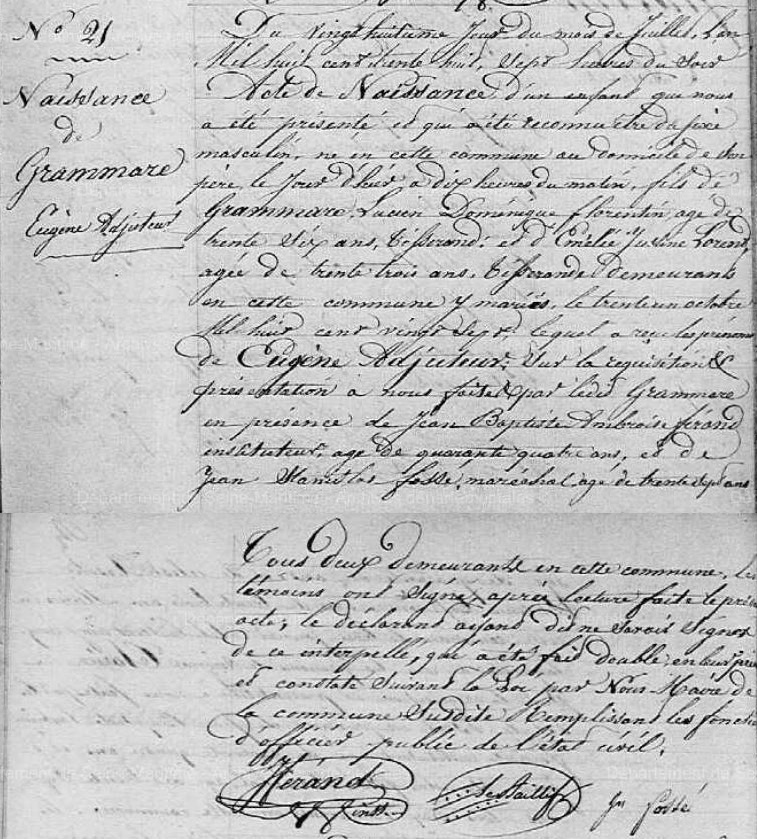 N.° 21
Naissance
de
Grammare
Eugène Adjuteur
Du vingt huitieme Jour du mois de Juillet, L'an
Mil huit cent trente huit, Sept heures du Soir
Acte de Naissance d'un enfant qui nous
a été présenté et qui a été reconnu être du sexe
masculin, né en cette commune au domicile de son
père, le Jour d'hui a dix heures du matin, fils de
Grammare, Lucien Dominique florentin, agé de
trente Six ans, tisserand, et d' Emélie Justine Lorent,
agée de trente trois ans, tisserande demeurants
en cette commune y mariés, le trente un octobre
Mil huit cent vingt Sept, lequel a reçu les prenoms
de Eugène Adjuteur; Sur la requisition &
présentation à nous faite par ledt Grammare
en présence de Jean Baptiste Ambroise férand
instituteur, agé de quarante quatre ans, et de
Jean Stanislas fossé, maréchal agé de trente Sept ans
Tous deux demeurants en cette commune, Les
témoins ont Signé, après lecture faite le présent
acte; le déclarant ayant dit ne Savoir Signer
de ce interpellé, qui a été fait double en leur
et constaté Suivant la Loi par Nous Maire de
la commune Susdite Remplissant les fonctions
d'officier public de l'état civil.
férand Le Bailli Jn fossé
instr